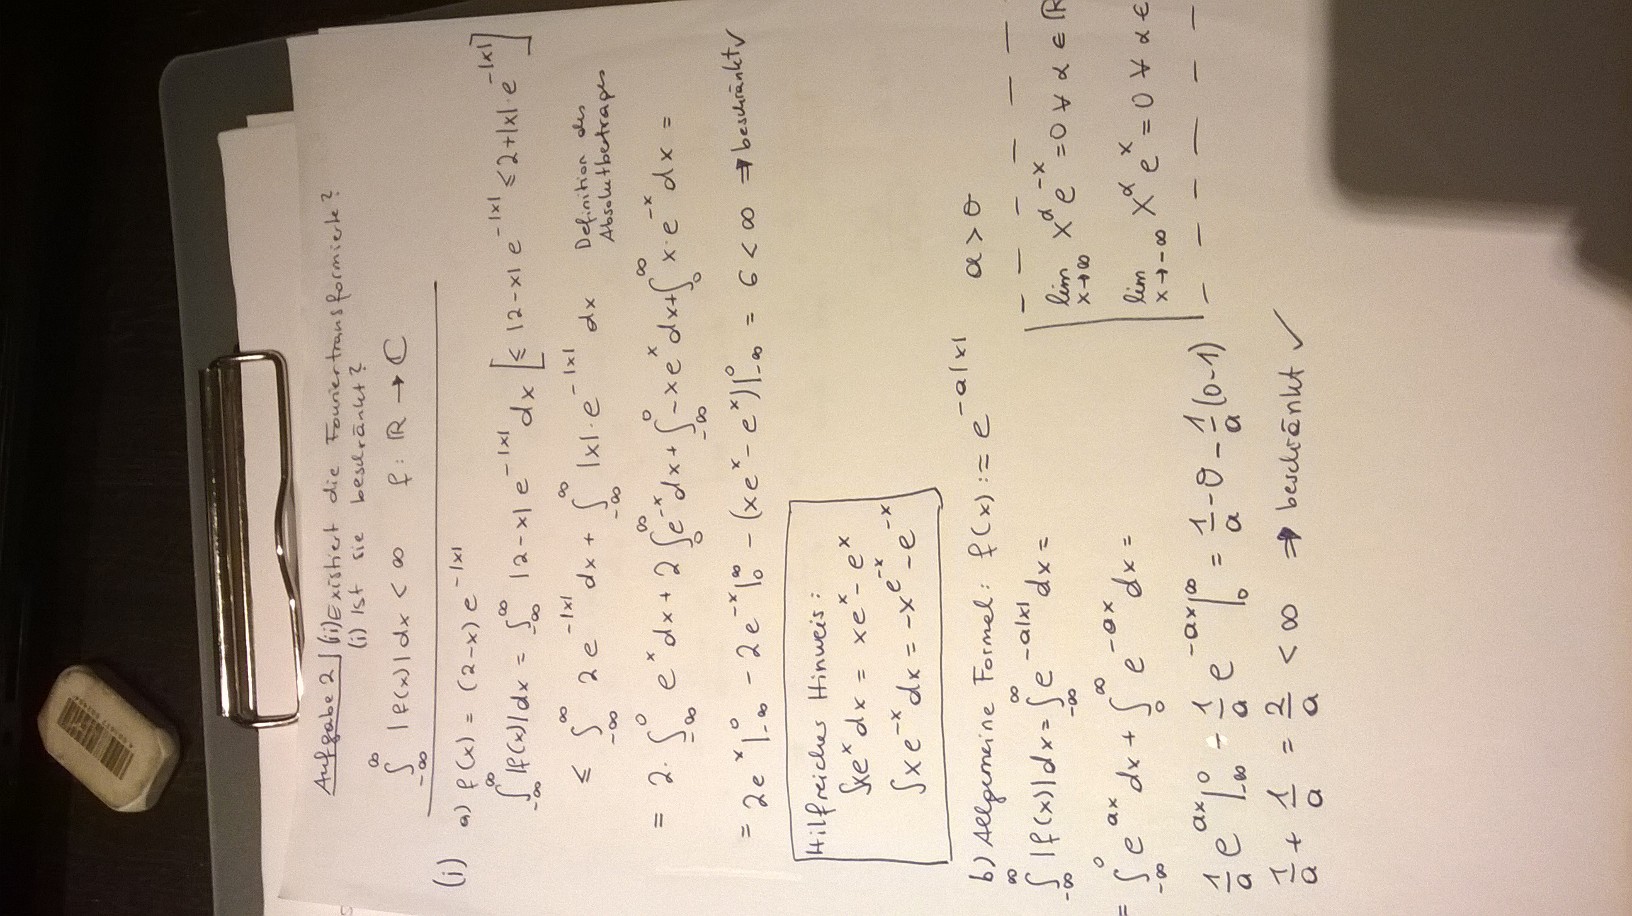 Aufgabe 2 (ii) Existiert die Fouriertransformierte?
(i) Ist sie beschränkt?
∫_{-∞}^{∞} |f(x)|dx < ∞   f: ℝ → ℂ
(i) a) f(x) = (2-x) e^{-|x|}
∫_{-∞}^{∞} |f(x)|dx = ∫_{-∞}^{∞} |2-x| e^{-|x|} dx [≤ |2-x| e^{-|x|} ≤ 2+|x|·e^{-|x|}]
≤ ∫_{-∞}^{∞} 2e^{-|x|} dx + ∫_{-∞}^{∞} |x|·e^{-|x|} dx   Definition des Absolutbetrages
= 2·∫_{-∞}^{0} e^{x} dx + 2∫_{0}^{∞} e^{-x} dx + ∫_{-∞}^{0} -xe^{x} dx + ∫_{0}^{∞} x·e^{-x} dx =
= 2e^{x}|_{-∞}^{0} - 2e^{-x}|_{0}^{∞} - (xe^{x} - e^{x})|_{-∞}^{0} = 6 < ∞ ⇒ beschränkt ✓
Hilfreicher Hinweis:
∫xe^{x}dx = xe^{x} - e^{x}
∫xe^{-x}dx = -xe^{-x} - e^{-x}
b) Allgemeine Formel: f(x) := e^{-a|x|}   a > 0
∫_{-∞}^{∞} |f(x)|dx = ∫_{-∞}^{∞} e^{-a|x|} dx =
= ∫_{-∞}^{0} e^{ax} dx + ∫_{0}^{∞} e^{-ax} dx =
lim_{x→∞} x^{α} e^{-x} = 0 ∀ α ∈ ℝ
lim_{x→-∞} x^{α} e^{x} = 0 ∀ α ∈
1/a e^{ax}|_{-∞}^{0} - 1/a e^{-ax}|_{0}^{∞} = 1/a - 0 - 1/a (0-1)
1/a + 1/a = 2/a < ∞ ⇒ beschränkt ✓